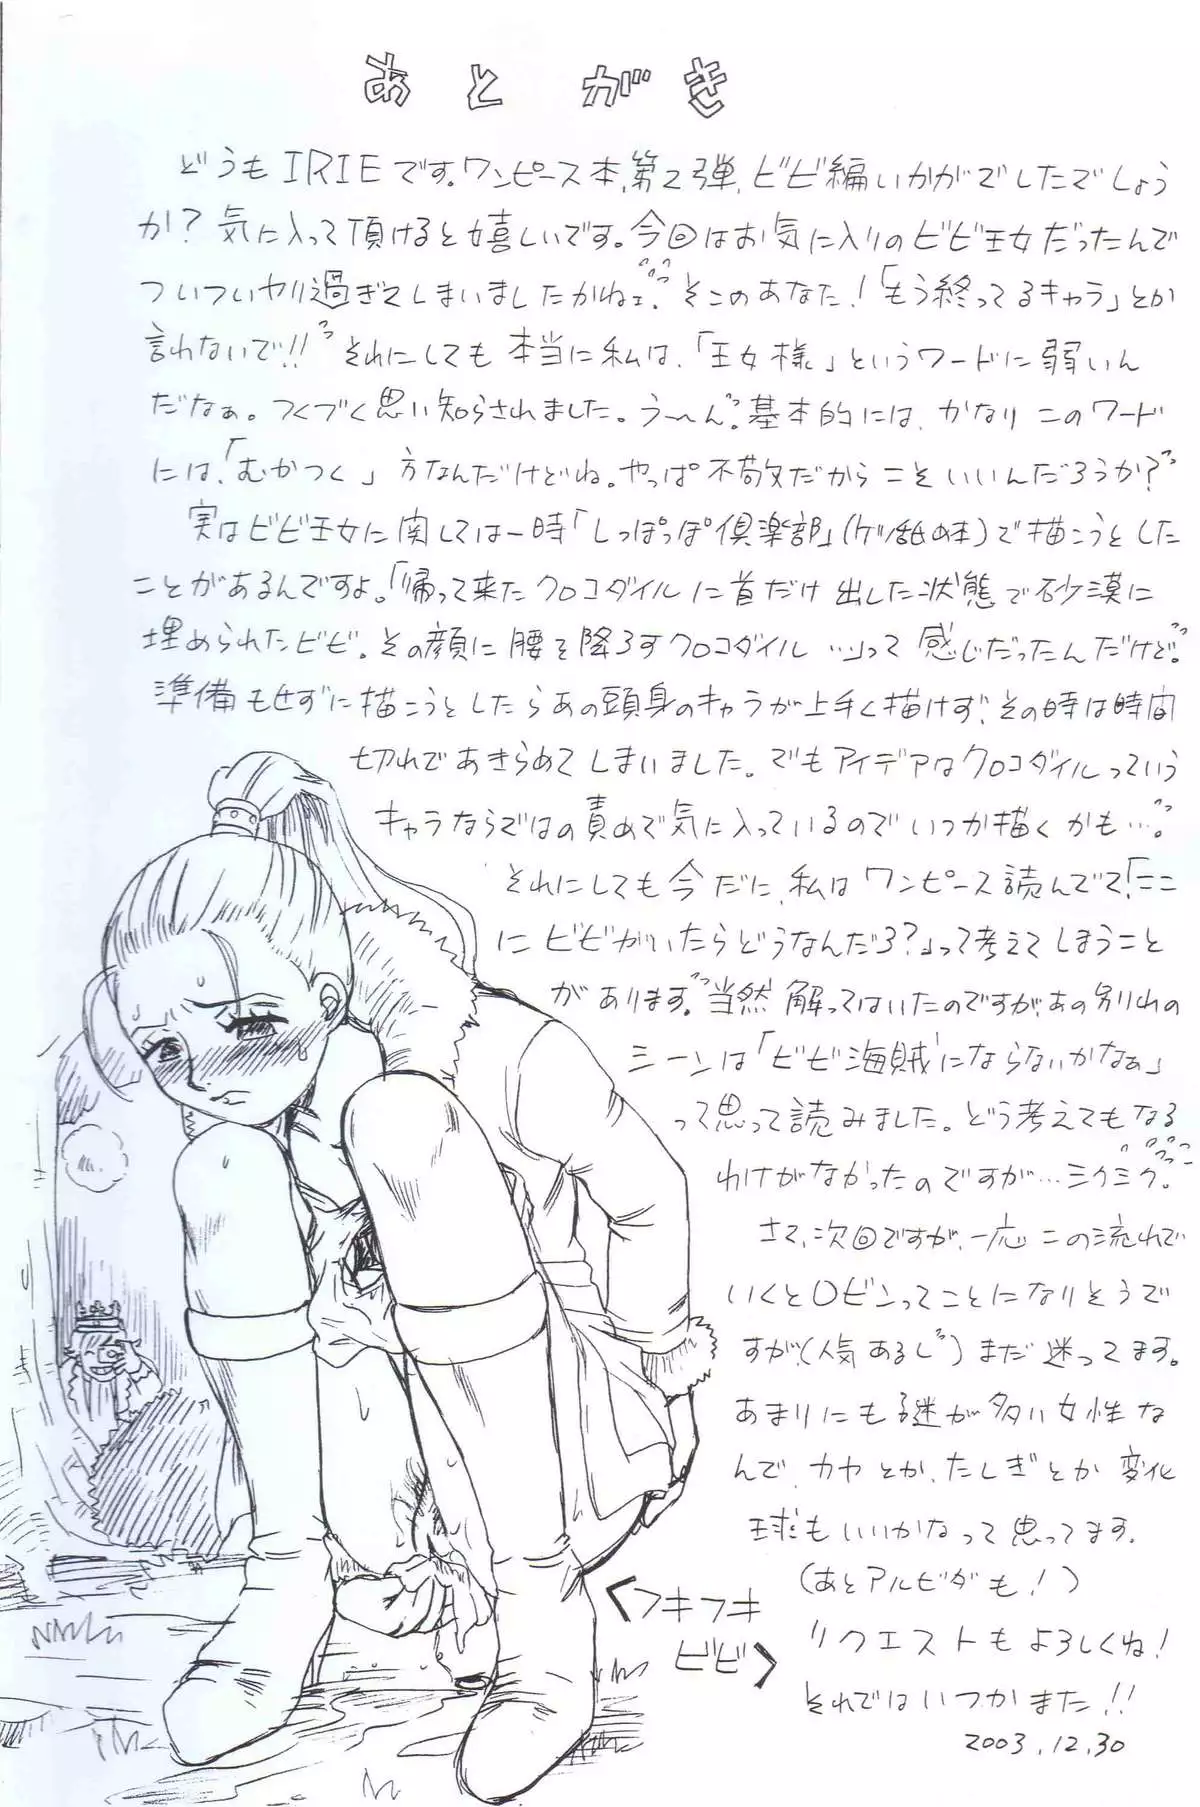 あとがき
どうもIRIEです。ワンピース本、第2弾、ビビ編いかがでしたでしょう
か？気に入って頂けると嬉しいです。今回はお気に入りのビビ王女だったんで
ついついヤリ過ぎてしまいましたがねェ。そこのあなた！「もう終ってるキャラ」とか
言わないで!!それにしても本当に私は、「王女様」というワードに弱いん
だなぁ。つくづく思い知らされました。う〜ん。基本的には、かなりこのワード
には、「むかつく」方なんだけどね。やっぱ不敬だからこそいいんだろうか？
実はビビ王女に関しては一時「しっぽっぽ倶楽部」(ケツ舐め本)で描こうとした
ことがあるんですよ。「帰って来たクロコダイルに首だけ出した状態で砂漠に
埋められたビビ。その顔に腰を降ろすクロコダイル…」って感じだったんだけど。
準備もせずに描こうとしたらあの頭身のキャラが上手く描けず、その時は時間
切れであきらめてしまいました。でもアイデアはクロコダイルっていう
キャラならではの責めで気に入っているのでいつか描くかも…。
それにしても今だに、私はワンピース読んでて、「ここ
にビビがいたらどうなんだろ？」って考えてしまうこと
があります。当然解ってはいたのですが、あの別れの
シーンは「ビビ海賊にならないかなぁ」
って思って読みました。どう考えてもなる
わけがなかったのですが…ミクミク。
さて、次回ですが、一応この流れで
いくとロビンってことになりそうで
すが、(人気あるし)まだ迷ってます。
あまりにも謎が多い女性な
んで、カヤとか、たしぎとか変化
球もいいかなって思ってます。
(あとアルビダも！)
リクエストもよろしくね！
それではいつかまた!!
2003.12.30
<フキフキ
ビビ>